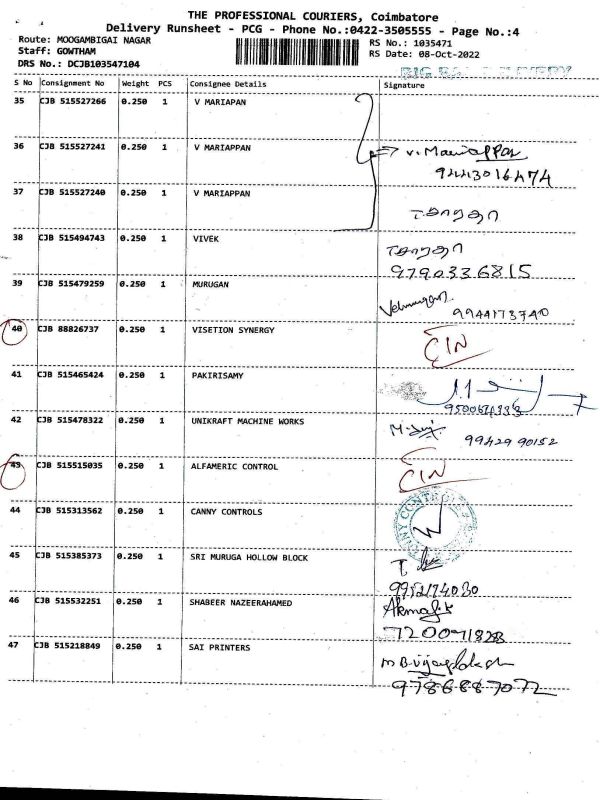 THE PROFESSIONAL COURIERS, Coimbatore
Delivery Runsheet - PCG - Phone No.:0422-3505555 - Page No.:4
Route: MOOGAMBIGAI NAGAR
RS No.: 1035471
Staff: GOWTHAM
RS Date: 08-Oct-2022
DRS No.: DCJB103547104
S No Consignment No Weight PCS Consignee Details Signature
35 CJB 515527266 0.250 1 V MARIAPAN
36 CJB 515527241 0.250 1 V MARIAPPAN V. Mariappan
9443016474
37 CJB 515527240 0.250 1 V MARIAPPAN
38 CJB 515494743 0.250 1 VIVEK
9790336815
39 CJB 515479259 0.250 1 MURUGAN Velmurugan
9944173740
40 CJB 88826737 0.250 1 VISETION SYNERGY
41 CJB 515465424 0.250 1 PAKIRISAMY
42 CJB 515478322 0.250 1 UNIKRAFT MACHINE WORKS
99429 90152
43 CJB 515515035 0.250 1 ALFAMERIC CONTROL
44 CJB 515313562 0.250 1 CANNY CONTROLS
45 CJB 515385373 0.250 1 SRI MURUGA HOLLOW BLOCK
9952174030
46 CJB 515532251 0.250 1 SHABEER NAZEERAHAMED
47 CJB 515218849 0.250 1 SAI PRINTERS
9786887072